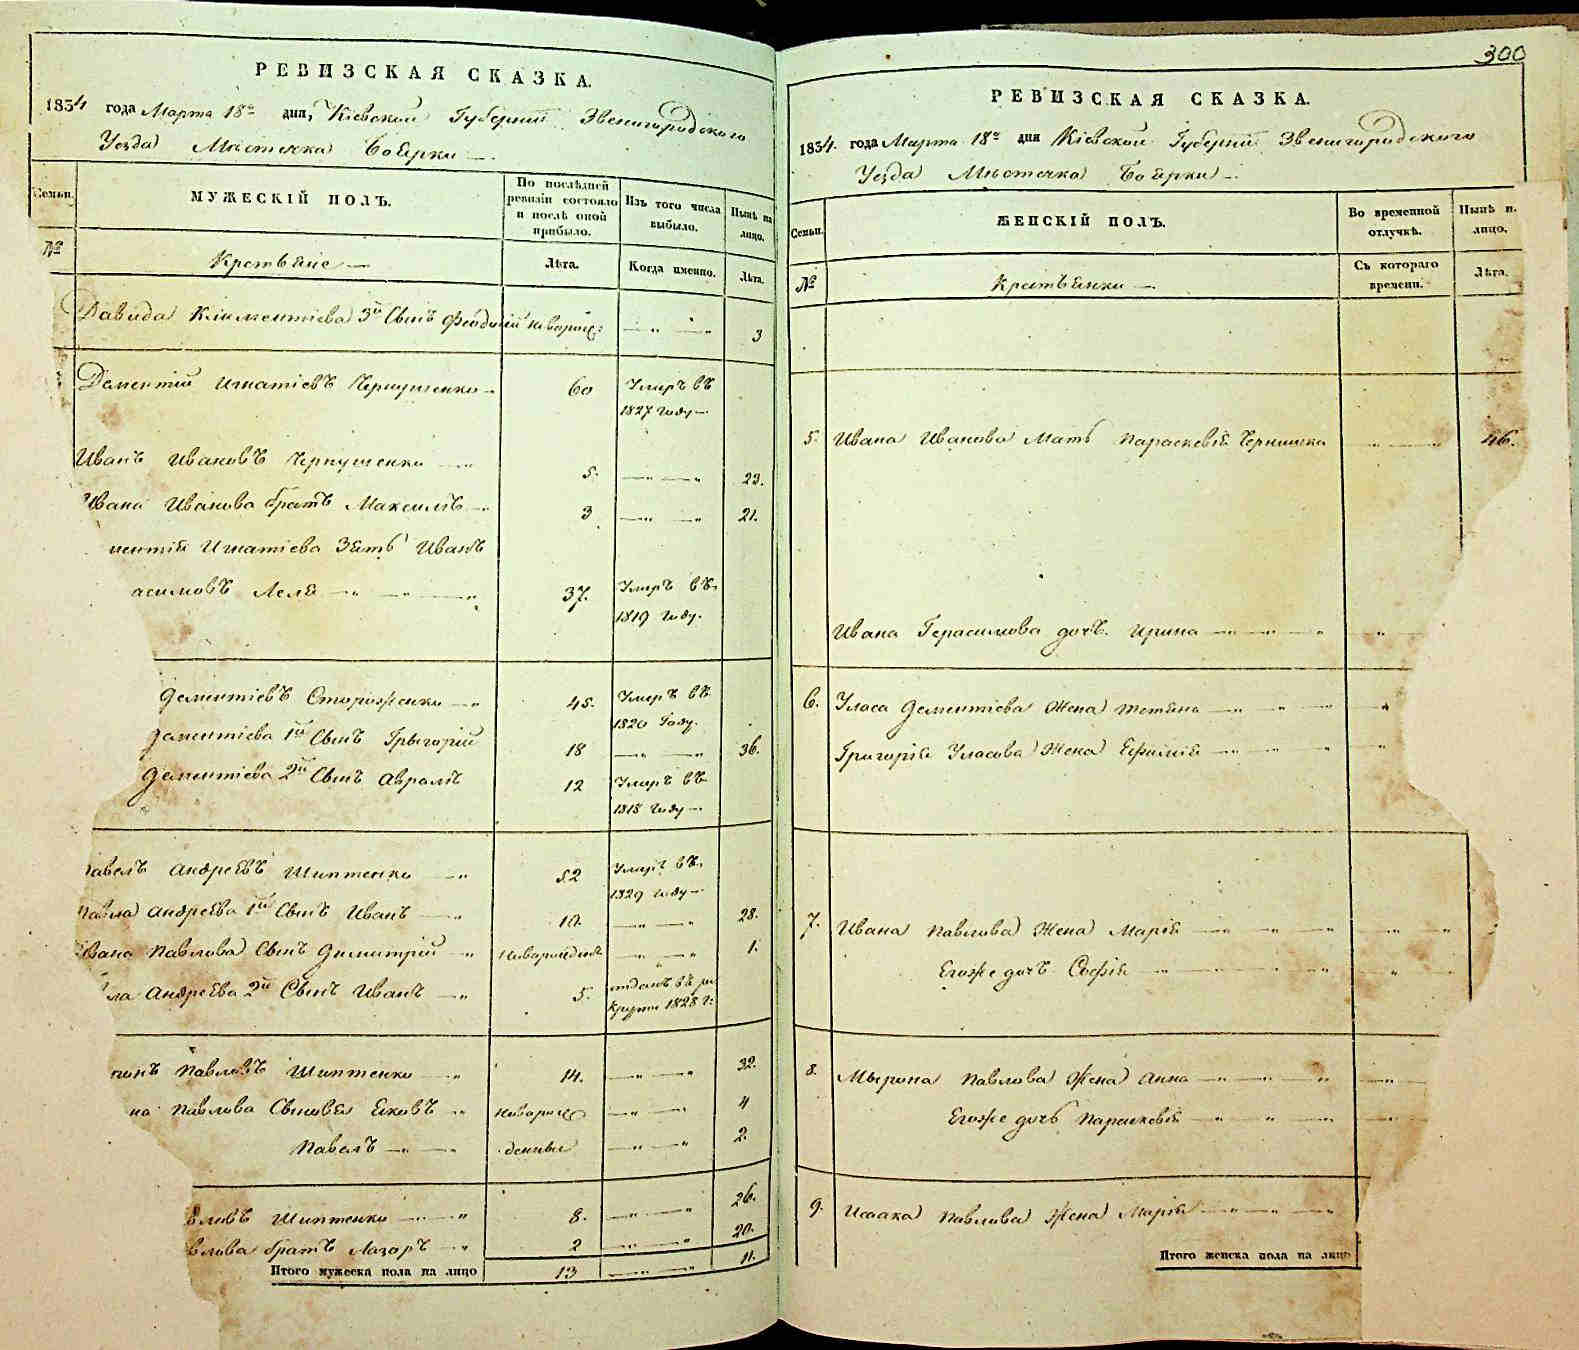 РЕВИЗСКАЯ СКАЗКА.
1834 года Марта 18го дня, Кіевской Губерніи Звенигородского
Уезда Мѣстечка Боерки
Семьи. МУЖЕСКІЙ ПОЛЪ. По послѣдней ревизіи состояло и послѣ оной прибыло. Изъ того числа выбыло. Нынѣ на лицо.
№ Крѣстьяне Лѣта. Когда именно. Лѣта.
Давида Климентіева 3й Сынъ Феодосій новорож: 3
Дементій Игнатіевъ Чернушенко 60 Умеръ въ
1827 году
Иванъ Ивановъ Чернушенко 5. 23.
Ивана Иванова братъ Максимъ 3 21.
ментія Игнатіева Зять Иванъ
асимовъ Леля 37. Умеръ въ
1819 году.
Дементіевъ Стороженко 45. Умеръ въ
1820 году.
Дементіева 1й Сынъ Грыгорій 18 36.
Дементіева 2й Сынъ Аврамъ 12 Умеръ въ
1818 году
Павелъ Андреевъ Шиптенко 52 Умеръ въ
1829 году
Павла Андреева 1й Сынъ Иванъ 10. 28.
Ивана Павлова Сынъ Димитрій новорожденъ 1.
ла Андреева 2й Сынъ Иванъ 5. отданъ въ ре
круты 1828 г:
ронъ Павловъ Шиптенко 14. 32.
на Павлова Сыновья Яковъ новорож 4
Павелъ денные 2.
вловъ Шиптенко 8. 26.
влова братъ Лазаръ 2 20.
Итого мужеска пола на лицо 13 11.
300
РЕВИЗСКАЯ СКАЗКА.
1834. года Марта 18го дня Кіевской Губерніи Звенигородского
Уезда Мѣстечка Боерки
Семьи. ЖЕНСКІЙ ПОЛЪ. Во временной отлучкѣ. Нынѣ н. лицо.
№ Крѣстьянки Съ котораго времени. Лѣта.
5. Ивана Иванова Мать Параскевія Чернишка 46.
Ивана Герасимова дочъ Ирина
6. Уласа Дементіева Жена Тетяна
Григорія Уласова Жена Ефимія
7. Ивана Павлова Жена Марія
Егоже дочъ Софія
8. Мырона Павлова Жена Анна
Егоже дочь Параскевія
9. Исаака Павлова Жена Марія
Итого женска пола на лицо